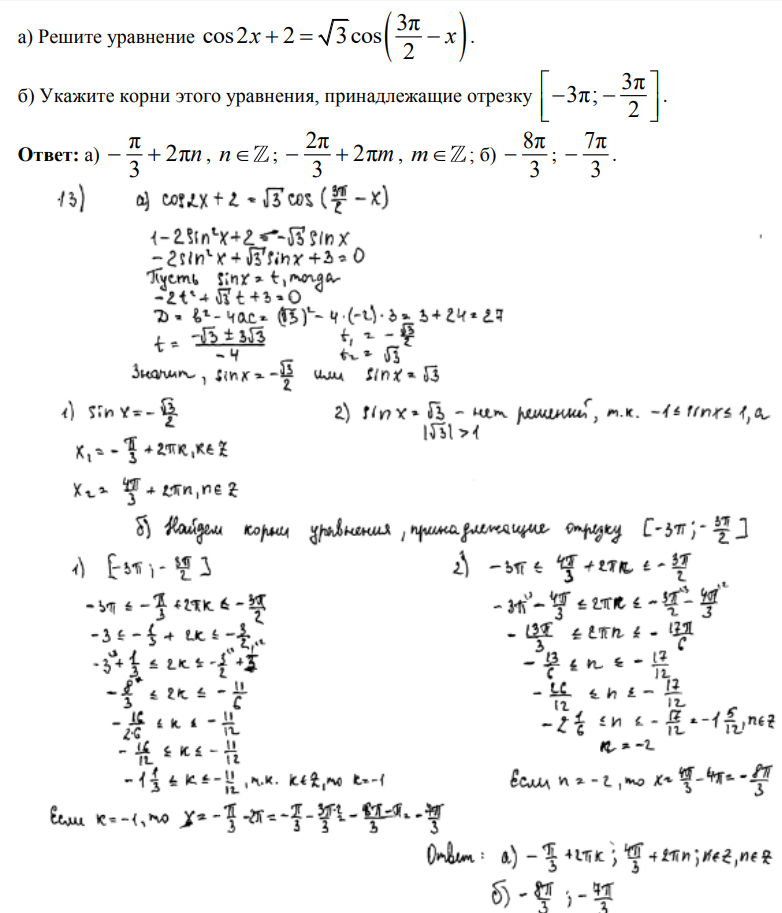 а) Решите уравнение cos2x + 2 = √3 cos(3π/2 − x).
б) Укажите корни этого уравнения, принадлежащие отрезку [−3π; −3π/2].
Ответ: а) −π/3 + 2πn, n ∈ ℤ; −2π/3 + 2πm, m ∈ ℤ; б) −8π/3; −7π/3.
13) а) cos2x + 2 = √3 cos(3π/2 − x)
1 − 2sin²x + 2 = −√3 sinx
−2sin²x + √3 sinx + 3 = 0
Пусть sinx = t, тогда
−2t² + √3 t + 3 = 0
D = b² − 4ac = (√3)² − 4·(−2)·3 = 3 + 24 = 27
t = (−√3 ± 3√3)/−4 t₁ = −√3/2
t₂ = √3
Значит, sinx = −√3/2 или sinx = √3
1) sinx = −√3/2
x₁ = −π/3 + 2πk, k∈Z
x₂ = 4π/3 + 2πn, n∈Z
2) sinx = √3 – нет решений, т.к. −1 ≤ sinx ≤ 1, а
|√3| > 1
б) Найдем корни уравнения, принадлежащие отрезку [−3π; −3π/2]
1) [−3π; −3π/2]
−3π ≤ −π/3 + 2πk ≤ −3π/2
−3 ≤ −1/3 + 2k ≤ −3/2
−3 + 1/3 ≤ 2k ≤ −3/2 + 1/3
−8/3 ≤ 2k ≤ −11/6
−16/2·6 ≤ k ≤ −11/12
−16/12 ≤ k ≤ −11/12
−1 1/3 ≤ k ≤ −11/12, т.к. k∈Z, то k = −1
Если k = −1, то x = −π/3 − 2π = −π/3
2) −3π ≤ 4π/3 + 2πn ≤ −3π/2
−3π − 4π/3 ≤ 2πn ≤ −3π/2 − 4π/3
−13π/3 ≤ 2πn ≤ −17π/6
−13/6 ≤ n ≤ −17/12
−26/12 ≤ n ≤ −17/12
−2 1/6 ≤ n ≤ −17/12 = −1 5/12, n∈Z
n = −2
Если n = −2, то x = 4π/3 − 4π = −8π/3
Ответ: а) −π/3 + 2πk; 4π/3 + 2πn; k∈Z, n∈Z
б) −8π/3; −7π/3